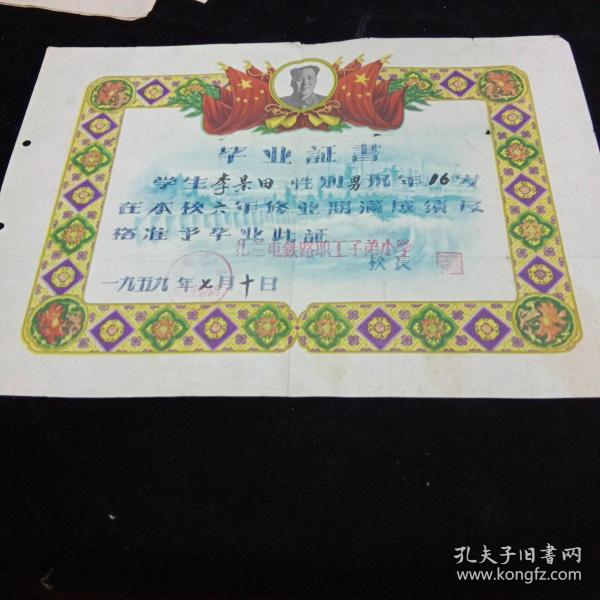 毕业証書
学生李景田性别男现年16岁
在本校六年修业期满成绩及
格准予毕业此証
扎兰屯鉄路职工子弟小学
校長
一九五九年七月十日
孔夫子旧书网
www.kongfz.com